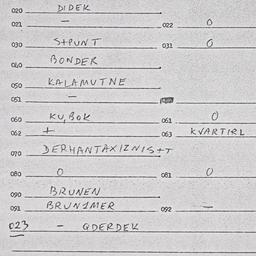 020 DIDEK
021 — 022 O
030 S+PUNT 031 O
040 BONDER
050 KALAMUTNE
051 —
060 KU, BOK 061 O
062 + 063 KVARTIRL
070 DERHANTAXIZNIS+T
080 O 081 O
090 BRUNEN
091 BRUN1MER 092 —
023 — GDERDEK